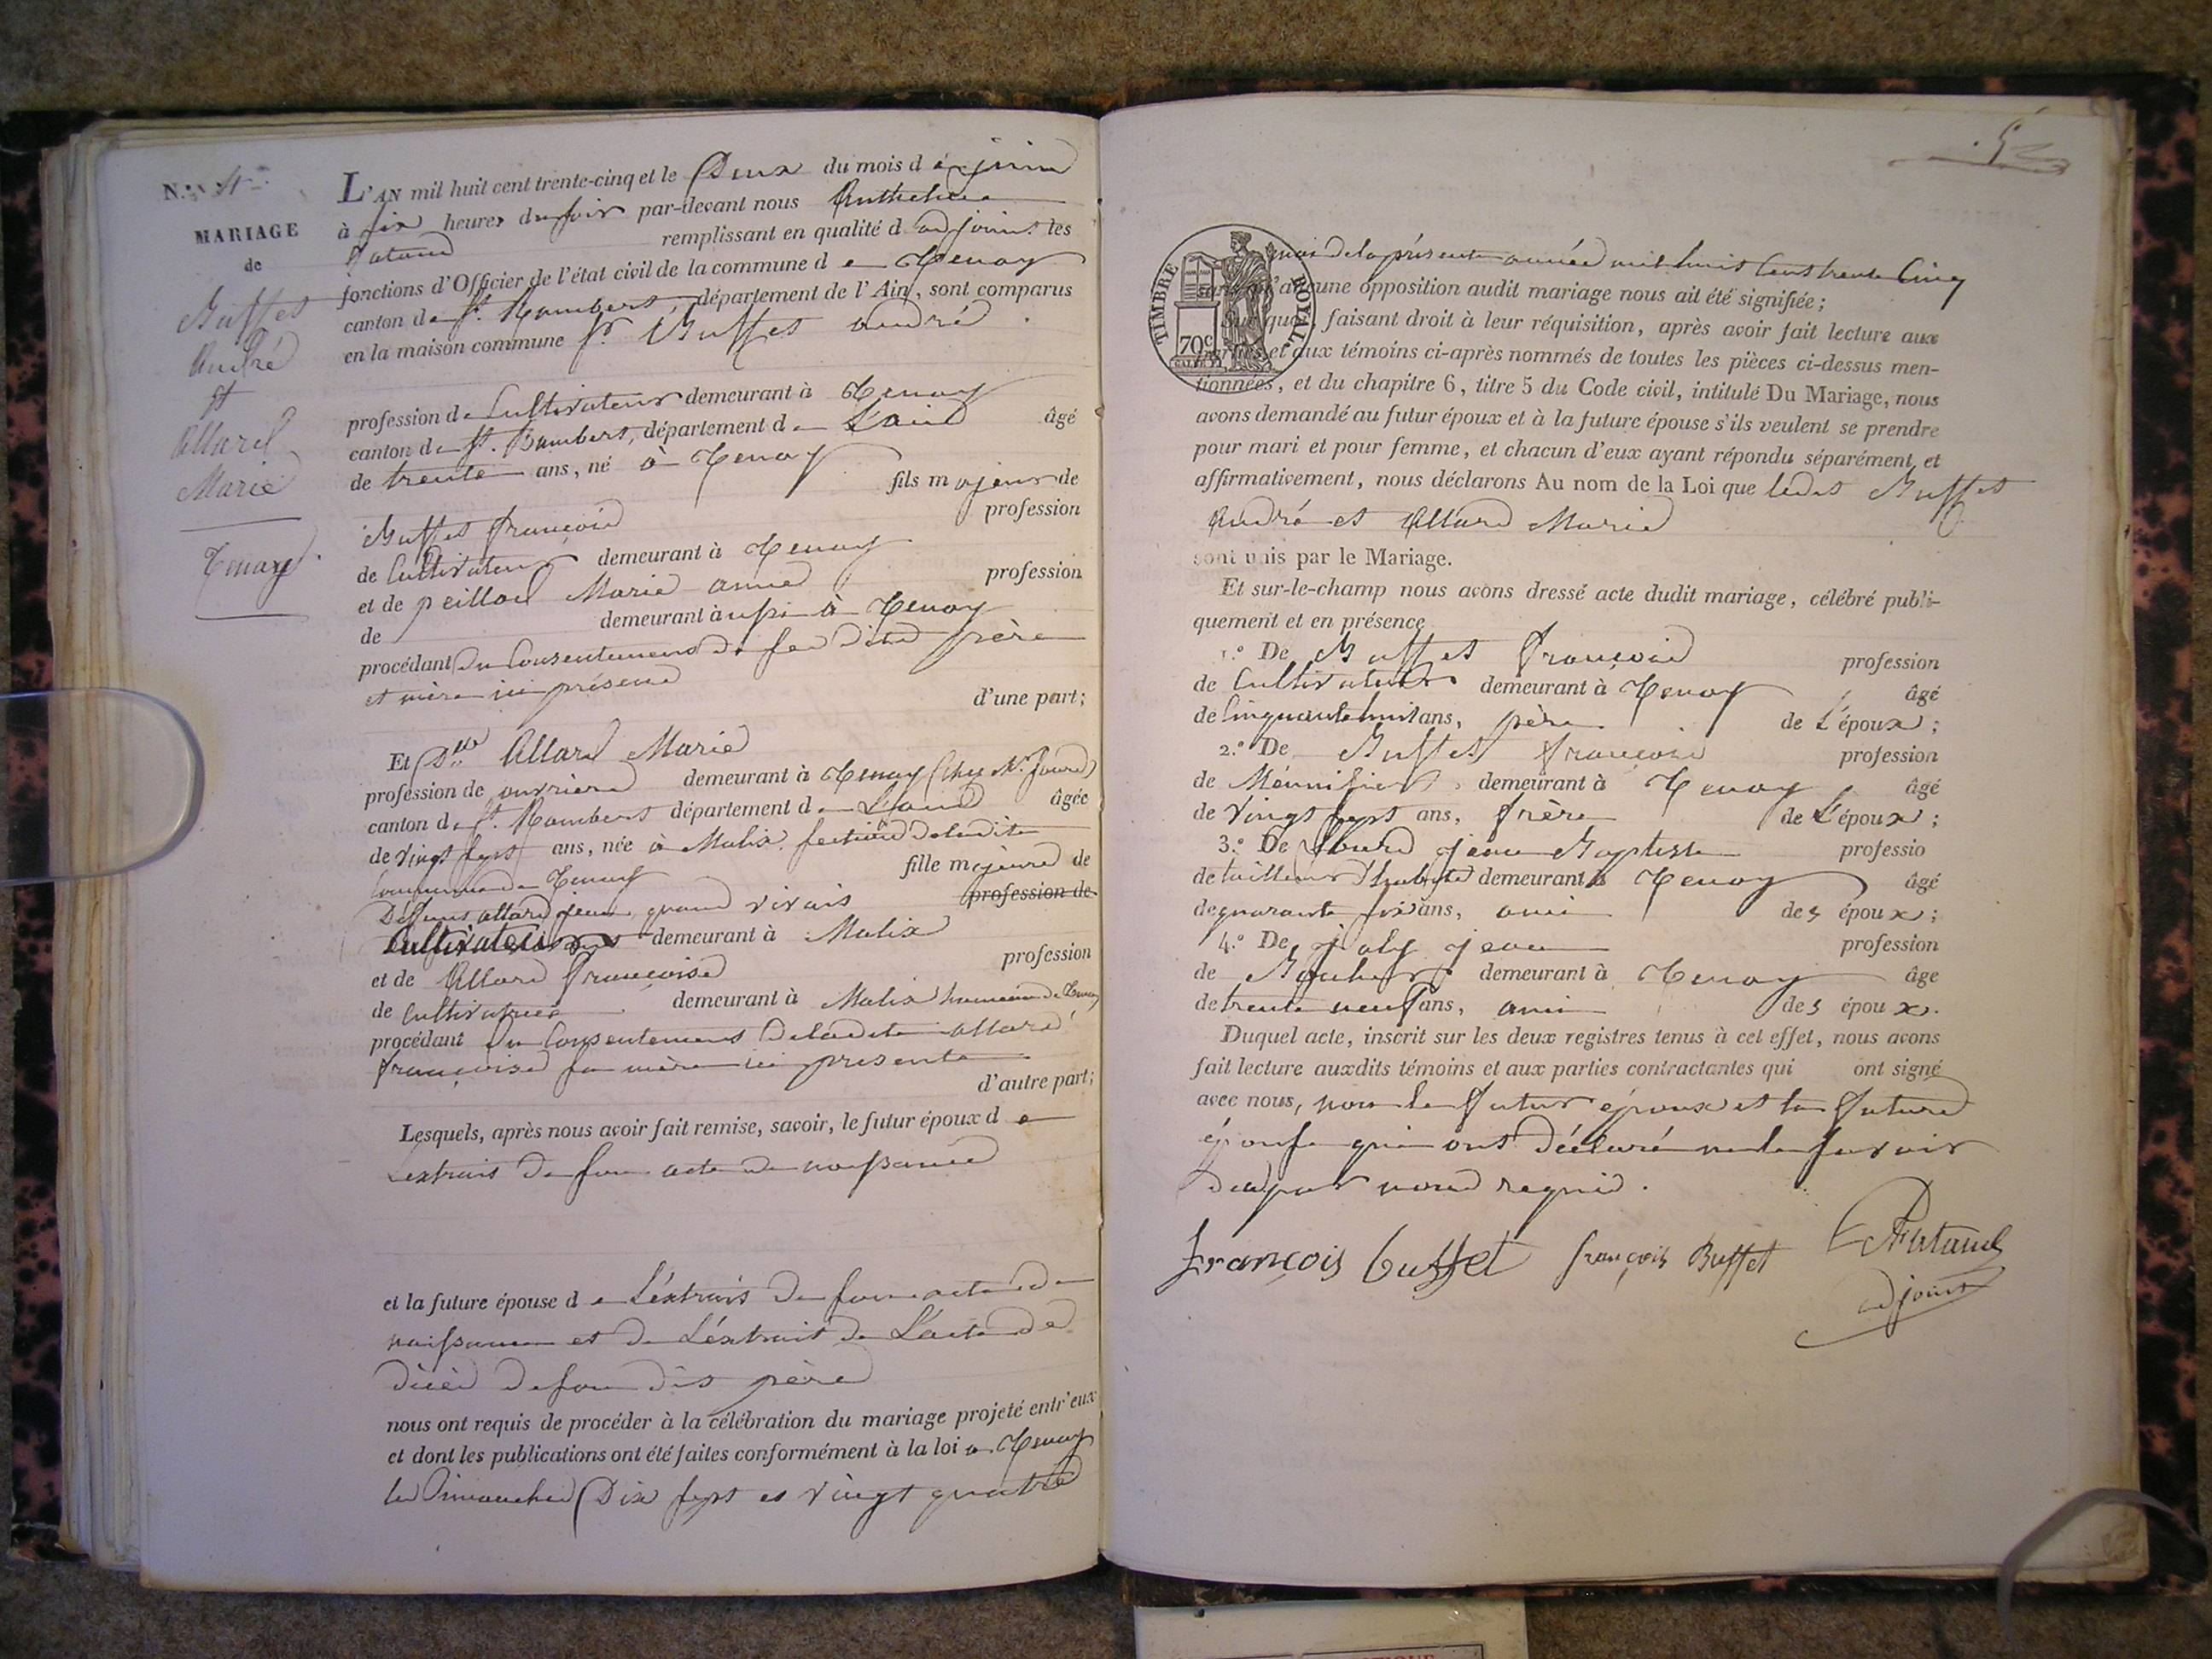 N.º 4
MARIAGE
de
Buffet
André
et
Allard
Marie
Tenay
L'AN mil huit cent trente-cinq et le Deux du mois de juin
à six heures du soir par-devant nous Anthelme
remplissant en qualité d adjoint les
fonctions d'Officier de l'état civil de la commune de Tenay
canton de St. Rambert, département de l'Ain, sont comparus
en la maison commune Sr. Buffet André
profession de Cultivateur demeurant à Tenay
canton de St. Rambert, département de L'ain âgé
de trente ans, né à Tenay
fils majeur de
Buffet françois profession
de Cultivateur demeurant à Tenay
et de peillod Marie anne profession
de demeurant aussi à Tenay
procédant du Consentement de ses dits père
et mère ici présens
d'une part;
Et Dlle Allard Marie
profession de ouvrière demeurant à Tenay (chez Mr.
canton de St. Rambert département de L'ain âgée
de vingt sept ans, née à Malix, section de ladite
Commune de Tenay fille majeure de
Défunt allard jean, quand vivait profession de
Cultivateur demeurant à Malix
et de Allard françoise profession
de Cultivatrice demeurant à Malix hameau de Tenay
procédant du Consentement de ladite allard
françoise sa mère ici présente
d'autre part;
Lesquels, après nous avoir fait remise, savoir, le futur époux de
L'extrait de son acte de naissance
et la future épouse de L'extrait de son acte de
naissance et de L'extrait de L'acte de
décès de son dit père
nous ont requis de procéder à la célébration du mariage projeté entr'eux
et dont les publications ont été faites conformément à la loi à Tenay
les Dimanches Dix sept et vingt quatre
5
TIMBRE ROYAL.
70c
mai de la présente année mil huit Cent trente Cinq
sans qu'aucune opposition audit mariage nous ait été signifiée;
Sur quoi, faisant droit à leur réquisition, après avoir fait lecture aux
parties et aux témoins ci-après nommés de toutes les pièces ci-dessus men-
tionnées, et du chapitre 6, titre 5 du Code civil, intitulé Du Mariage, nous
avons demandé au futur époux et à la future épouse s'ils veulent se prendre
pour mari et pour femme, et chacun d'eux ayant répondu séparément et
affirmativement, nous déclarons Au nom de la Loi que ledit Buffet
André et Allard Marie
sont unis par le Mariage.
Et sur-le-champ nous avons dressé acte dudit mariage, célébré publi-
quement et en présence
1.º De Buffet françois profession
de Cultivateur demeurant à Tenay âgé
de Cinquante huit ans, père de L'époux;
2.º De Buffet françois profession
de Menuisier, demeurant à Tenay âgé
de vingt sept ans, frère de L'époux;
3.º De jean Baptiste professio
de tailleur d'habits demeurant à Tenay âgé
de quarante six ans, ami des époux;
4.º De joly jean profession
de demeurant à Tenay âgé
de trente neuf ans, ami des époux.
Duquel acte, inscrit sur les deux registres tenus à cet effet, nous avons
fait lecture auxdits témoins et aux parties contractantes qui ont signé
avec nous, non le futur époux et la future
épouse qui ont déclaré ne le savoir
de ce par nous requis.
françois buffet françois Buffet
adjoint